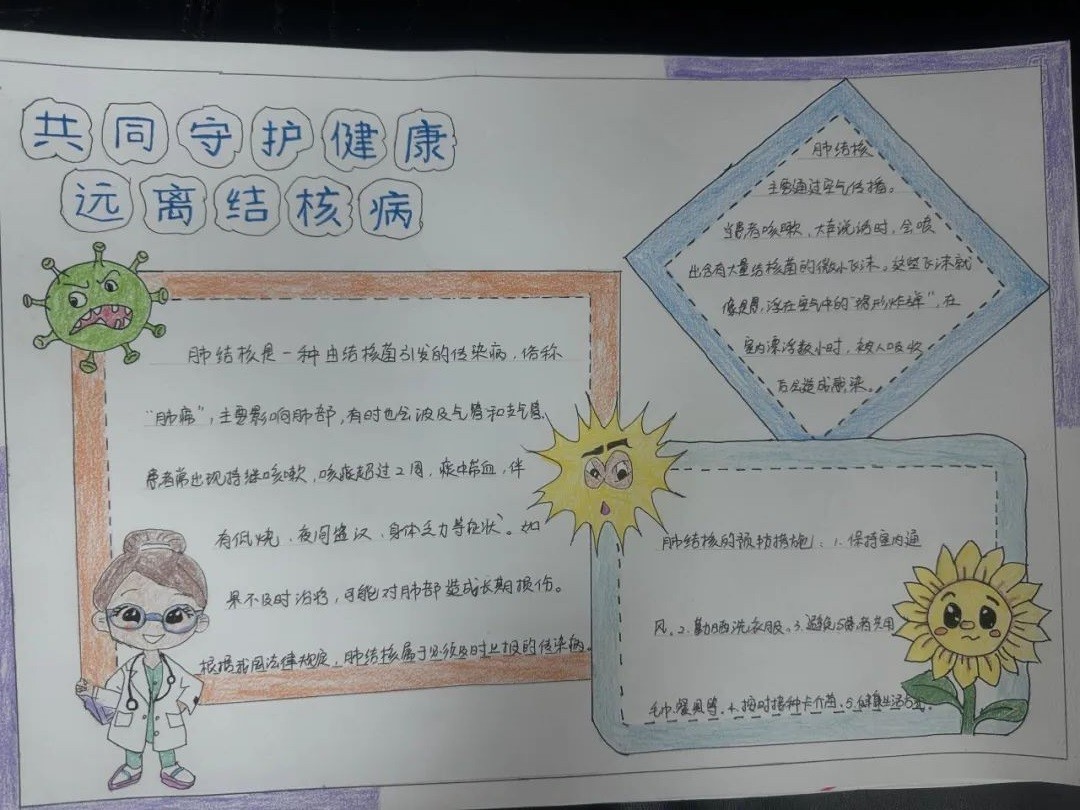 共同守护健康
远离结核病
肺结核是一种由结核菌引发的传染病，俗称
“肺痨”，主要影响肺部，有时也会波及气管和支气管，
患者常出现持续咳嗽，咳痰超过2周，痰中带血，伴
有低烧、夜间盗汗、身体乏力等症状。如
果不及时治疗，可能对肺部造成长期损伤。
根据我国法律规定，肺结核属于必须及时上报的传染病。
肺结核
主要通过空气传播。
当患者咳嗽、大声说话时，会喷
出含有大量结核菌的微小飞沫。这些飞沫就
像悬浮在空气中的“隐形炸弹”，在
室内漂浮数小时，被人吸收
后会造成感染。
肺结核的预防措施：1.保持室内通
风。2.勤晒洗衣服。3.避免与患者共用
毛巾、餐具等。4.按时接种卡介苗。5.健康生活方式。